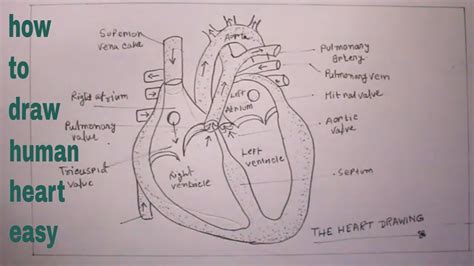 how
to
draw
human
heart
easy
Superior
vena cava
Aorta
Pulmonary
artery
Pulmonary vein
Mitral valve
Aortic
valve
Septum
Right atrium
Left
Atrium
Pulmonary
valve
Tricuspid
valve
Right
ventricle
Left
ventricle
THE HEART DRAWING